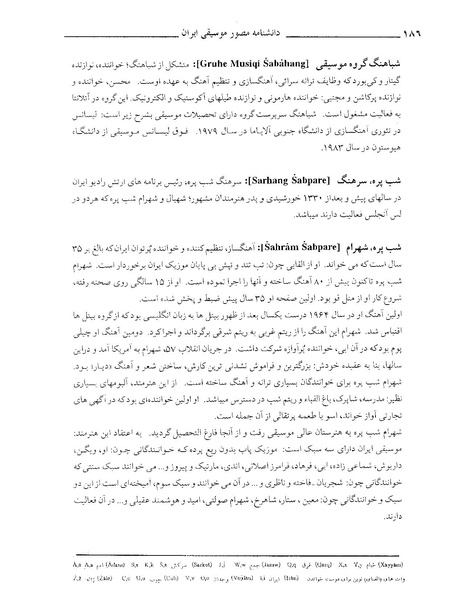 ۱۸۶ دانشنامه مصور موسیقی ایران
شباهنگ گروه موسیقی [Gruhe Musiqi Šabâhang]: متشکل از شباهنگ؛ خواننده، نوازنده
گیتار و کی‌بورد که وظایف ترانه سرائی، آهنگسازی و تنظیم آهنگ به عهده اوست. محسن، خواننده و
نوازنده پرکاشن و مجتبی: خواننده هارمونی و نوازنده طبلهای آکوستیک و الکترونیک. این گروه در آتلانتا
به فعالیت مشغول است. شباهنگ سرپرست گروه دارای تحصیلات موسیقی بشرح زیر است: لیسانس
در تئوری آهنگسازی از دانشگاه جنوبی آلاباما در سال ۱۹۷۹. فوق لیسانس موسیقی از دانشگاه
هیوستون در سال ۱۹۸۳.
شب پره، سرهنگ [Sarhang Šabpare]: سرهنگ شب پره، رئیس برنامه های ارتش رادیو ایران
در سالهای پیش و بعد از ۱۳۳۰ خورشیدی و پدر هنرمندان مشهور؛ شهبال و شهرام شب پره که هردو در
لس آنجلس فعالیت دارند میباشد.
شب پره، شهرام [Šahrâm Šabpare]: آهنگساز، تنظیم کننده و خواننده پُرتوان ایران که بالغ بر ۳۵
سال است که می خواند. او از القابی چون: تب تند و تپش بی پایان موزیک ایران برخوردار است. شهرام
شب پره تاکنون بیش از ۸۰ آهنگ ساخته و آنها را اجرا نموده است. او از ۱۵ سالگی روی صحنه رفته،
شروع کار او از متل قو بود. اولین صفحه او ۳۵ سال پیش ضبط و پخش شده است.
اولین آهنگ او در سال ۱۹۶۴ درست یکسال بعد از ظهور بیتل ها به زبان انگلیسی بود که از گروه بیتل ها
اقتباس شد. شهرام این آهنگ را از ریتم غربی به ریتم شرقی برگرداند و اجرا کرد. دومین آهنگ او چیلی
پوم بود که در آن ابی، خواننده پُرآوازه شرکت داشت. در جریان انقلاب ۵۷، شهرام به آمریکا آمد و در این
سالها، بنا به عقیده خودش: بزرگترین و فراموش نشدنی ترین کارش، ساختن شعر و آهنگ «دیار» بود.
شهرام شب پره برای خوانندگان بسیاری ترانه و آهنگ ساخته است. از این هنرمند، آلبومهای بسیاری
نظیر: مدرسه، شاپرک، باغ الفباء و ریتم شب در دسترس میباشد. او اولین خواننده‌ای بود که در آگهی های
تجارتی آواز خواند، اسو یا طعمه پرتقالی از آن جمله است.
شهرام شب پره به هنرستان عالی موسیقی رفت و از آنجا فارغ التحصیل گردید. به اعتقاد این هنرمند:
موسیقی ایران دارای سه سبک است: موزیک پاپ بدون ربع پرده که خوانندگانی چون: او، ویگن،
داریوش، شماعی زاده، ابی، فرهاد، فرامرز اصلانی، اندی، مارتیک و پیروز و... می خوانند سبک سنتی که
خوانندگانی چون: شجریان، فاخته و ناظری و ... در آن می خوانند و سبک سوم، آمیخته‌ای است از این دو
سبک و خوانندگانی چون: معین، ستار، شاهرخ، شهرام صولتی، امید و هوشمند عقیلی و... در آن فعالیت
دارند.